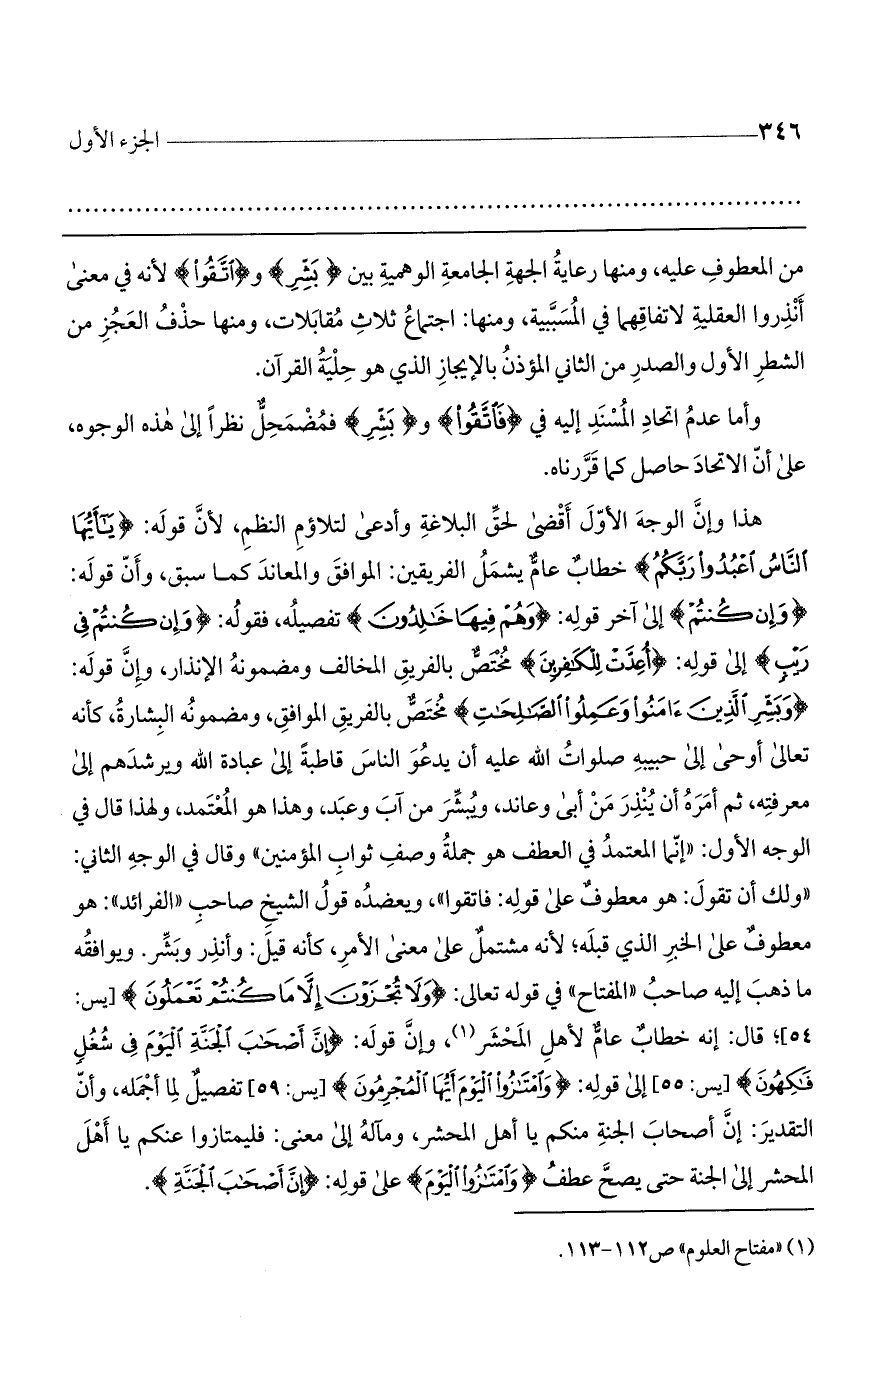 ٣٤٦ الجزء الأول
من المعطوفِ عليه، ومنها رعايةُ الجهةِ الجامعةِ الوهميةِ بين ﴿بَشِّرِ﴾ و﴿ٱتَّقُوا۟﴾ لأنه في معنىٰ
أَنْذِروا العقليةِ لاتفاقِهما في المُسَبَّبية، ومنها: اجتماعُ ثلاثِ مُقابَلات، ومنها حذْفُ العَجُزِ من
الشطرِ الأول والصدرِ من الثاني المؤذنُ بالإيجازِ الذي هو حِلْيَةُ القرآن.
وأما عدمُ اتحادِ المُسْنَدِ إليه في ﴿فَٱتَّقُوا۟﴾ و﴿بَشِّرِ﴾ فمُضْمَحِلٌّ نظراً إلىٰ هٰذه الوجوه،
علىٰ أنّ الاتحادَ حاصل كما قَرَّرناه.
هذا وإنَّ الوجهَ الأوّلَ أَقْضىٰ لحقِّ البلاغةِ وأدعىٰ لتلاؤمِ النظمِ، لأنَّ قولَه: ﴿يَـٰٓأَيُّهَا
ٱلنَّاسُ ٱعْبُدُوا۟ رَبَّكُمُ﴾ خطابٌ عامٌّ يشمَلُ الفريقين: الموافقَ والمعاندَ كمـا سبق، وأَنّ قولَه:
﴿وَإِن كُنتُمْ﴾ إلىٰ آخر قولِه: ﴿وَهُمْ فِيهَا خَـٰلِدُونَ﴾ تفصيلُه، فقولُه: ﴿وَإِن كُنتُمْ فِى
رَيْبٍ﴾ إلىٰ قولِه: ﴿أُعِدَّتْ لِلْكَـٰفِرِينَ﴾ مُختَصٌّ بالفريقِ المخالف ومضمونهُ الإنذار، وإنَّ قولَه:
﴿وَبَشِّرِ ٱلَّذِينَ ءَامَنُوا۟ وَعَمِلُوا۟ ٱلصَّـٰلِحَـٰتِ﴾ مُختَصٌّ بالفريقِ الموافقِ، ومضمونُه البِشارةُ، كأنه
تعالىٰ أوحىٰ إلىٰ حبيبهِ صلواتُ الله عليه أن يدعُوَ الناسَ قاطبةً إلىٰ عبادة الله ويرشدَهم إلىٰ
معرفتِه، ثم أمَرَهُ أن يُنْذِرَ مَنْ أبىٰ وعاند، ويُبشِّرَ من آبَ وعبَد، وهذا هو المُعْتَمد، ولهذا قال في
الوجه الأول: «إنّما المعتمدُ في العطف هو جملةُ وصفِ ثوابِ المؤمنين» وقال في الوجهِ الثاني:
«ولك أن تقولَ: هو معطوفٌ علىٰ قولِه: فاتقوا»، ويعضدُه قولُ الشيخِ صاحبِ «الفرائد»: هو
معطوفٌ علىٰ الخبرِ الذي قبلَه؛ لأنه مشتملٌ علىٰ معنىٰ الأمرِ، كأنه قيلَ: وأنذِر وبَشِّر. ويوافقُه
ما ذهبَ إليه صاحبُ «المفتاح» في قوله تعالى: ﴿وَلَا تُجْزَوْنَ إِلَّا مَا كُنتُمْ تَعْمَلُونَ﴾ [يس:
٥٤]؛ قال: إنه خطابٌ عامٌّ لأهلِ المَحْشَر(١)، وإنَّ قولَه: ﴿إِنَّ أَصْحَـٰبَ ٱلْجَنَّةِ ٱلْيَوْمَ فِى شُغُلٍ
فَـٰكِهُونَ﴾ [يس: ٥٥] إلىٰ قولِه: ﴿وَٱمْتَـٰزُوا۟ ٱلْيَوْمَ أَيُّهَا ٱلْمُجْرِمُونَ﴾ [يس: ٥٩] تفصيلٌ لِما أجْمَله، وأنّ
التقديرَ: إنَّ أصحابَ الجنةِ منكم يا أهل المحشر، ومآلهُ إلىٰ معنى: فليمتازوا عنكم يا أهْلَ
المحشر إلىٰ الجنة حتى يصحَّ عطفُ ﴿وَٱمْتَـٰزُوا۟ ٱلْيَوْمَ﴾ علىٰ قولِه: ﴿إِنَّ أَصْحَـٰبَ ٱلْجَنَّةِ﴾.
(١) «مفتاح العلوم» ص١١٢-١١٣.